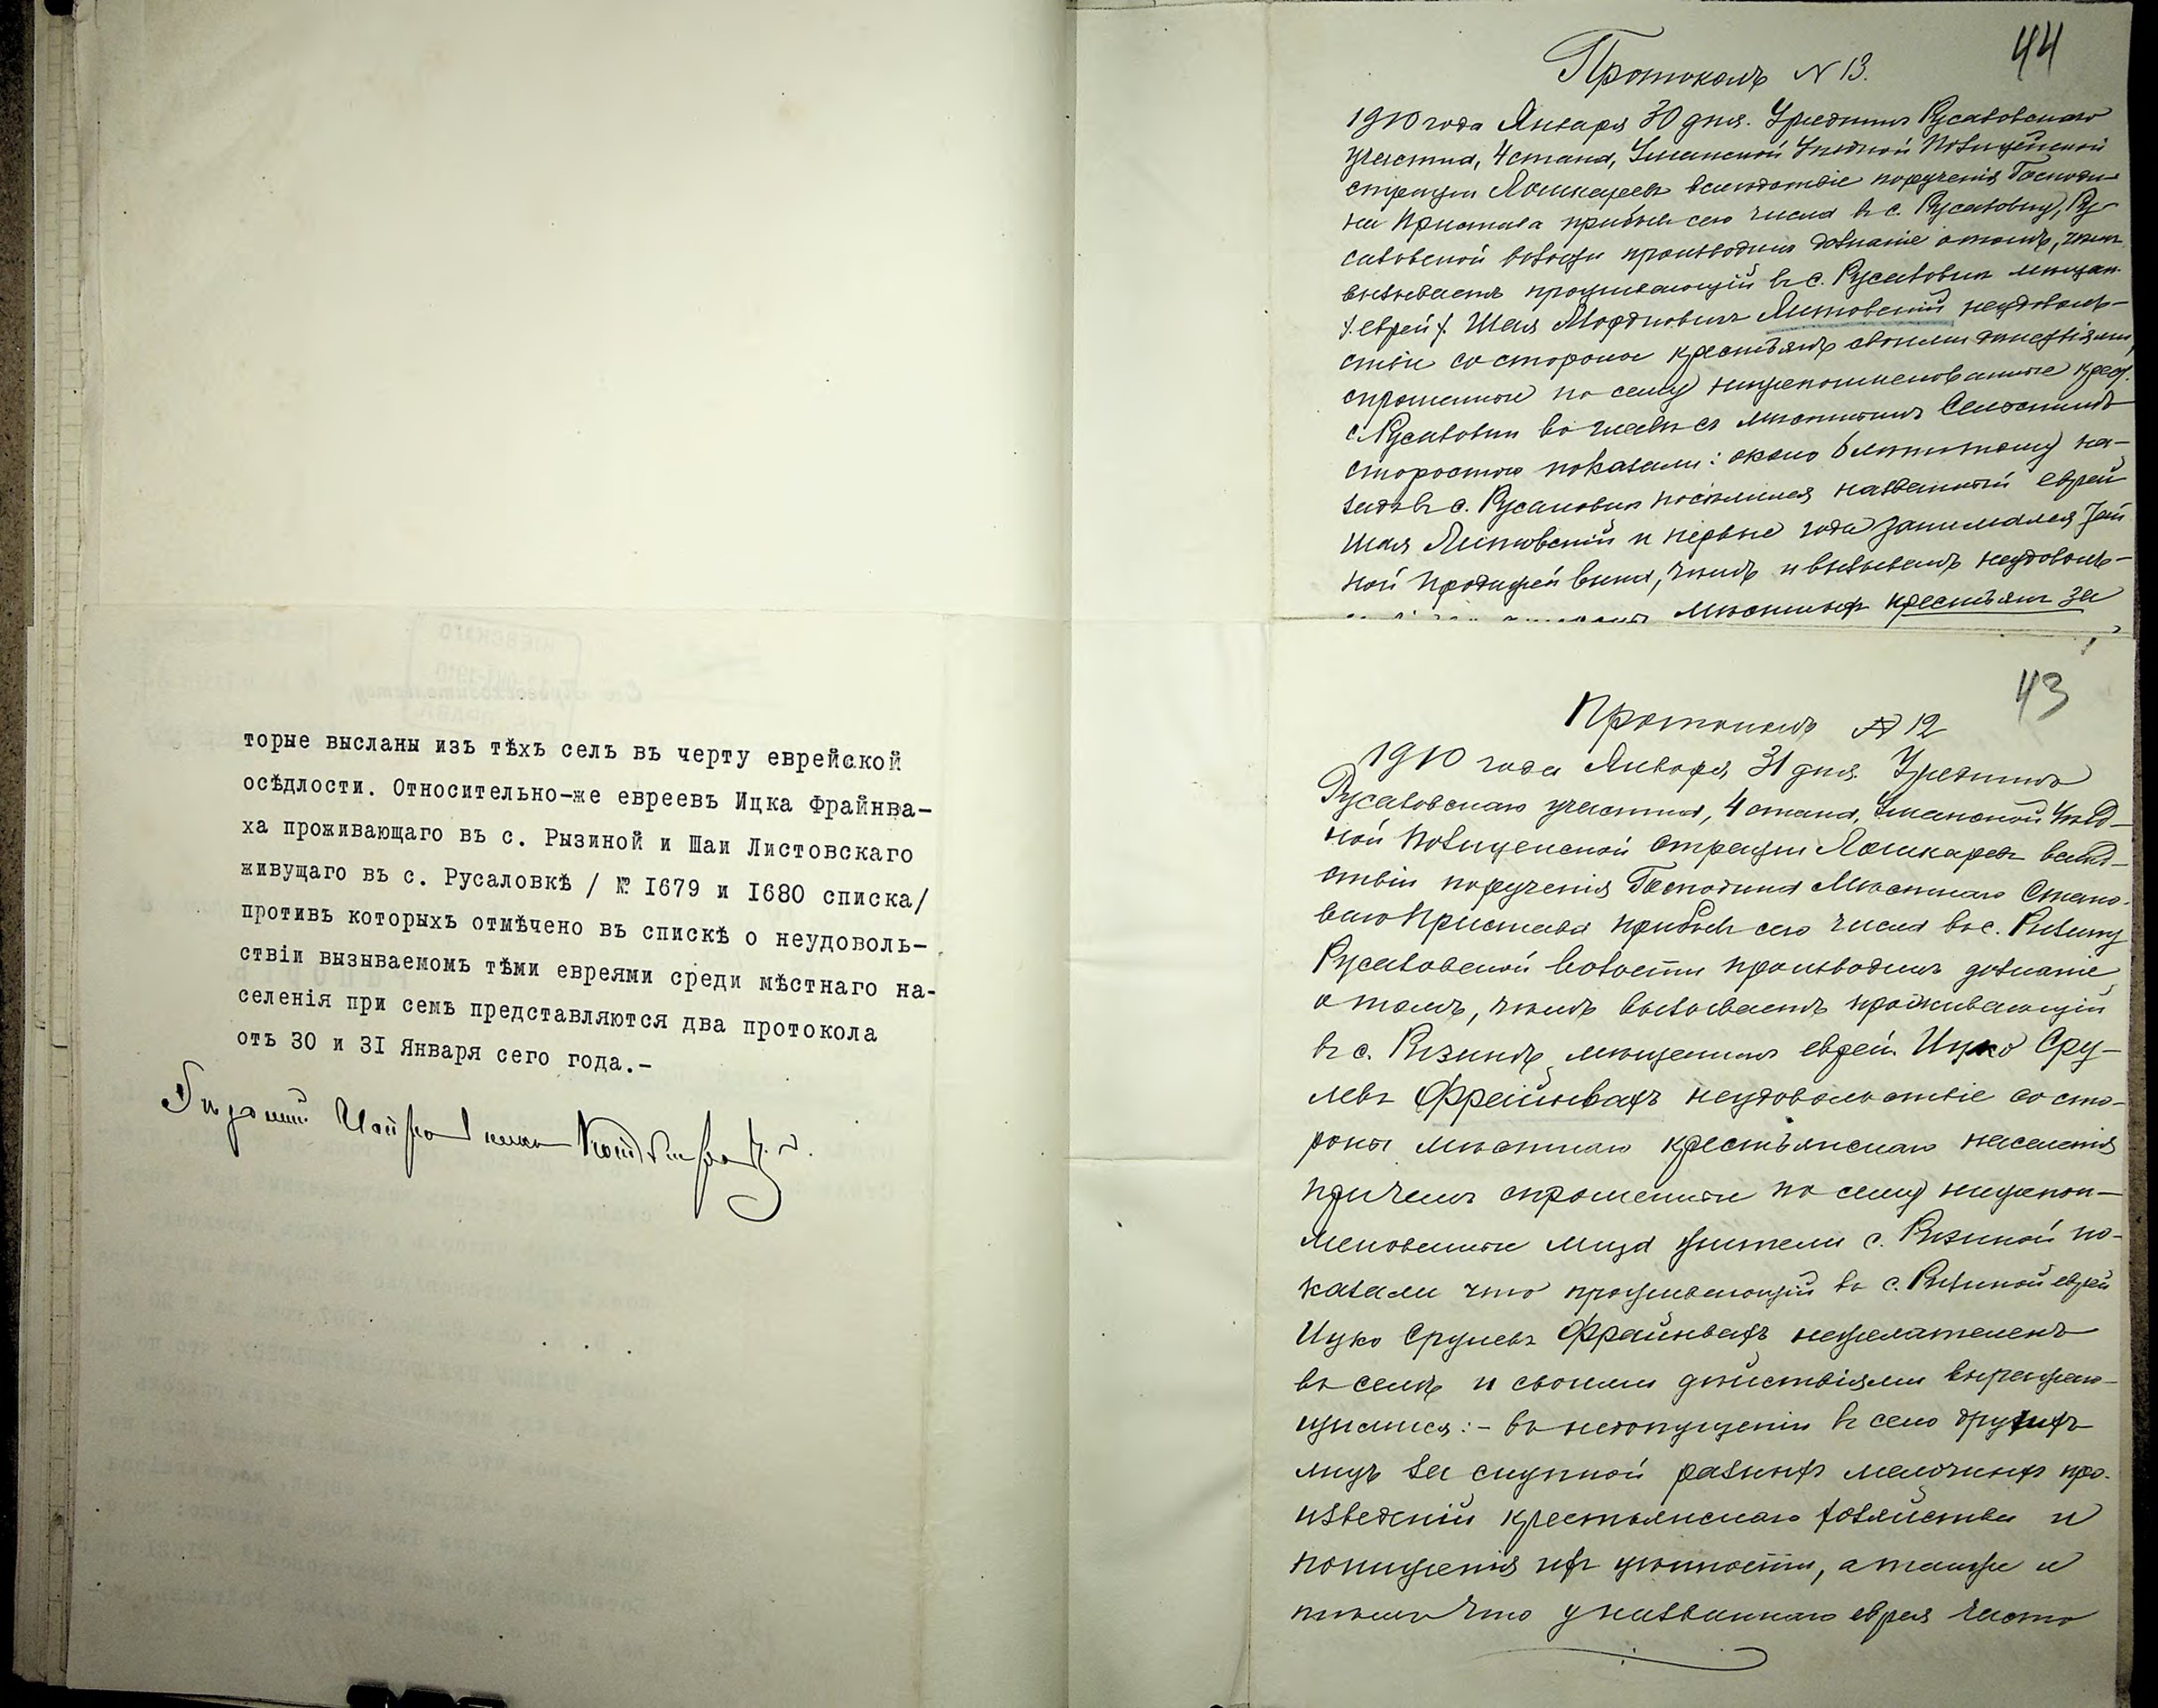 торые высланы изъ тѣхъ селъ въ черту еврейской
осѣдлости. Относительно-же евреевъ Ицка Фрайнва-
ха проживающаго въ с. Рызиной и Шаи Листовскаго
живущаго въ с. Русаловкѣ / № 1679 и 1680 списка/
противъ которыхъ отмѣчено въ спискѣ о неудоволь-
ствіи вызываемомъ тѣми евреями среди мѣстнаго на-
селенія при семъ представляются два протокола
отъ 30 и 31 Января сего года.-
44
Протоколъ N 13.
1910 года Января 30 дня. Урядникъ Русаловскаго
участка, 4 стана, Уманской Уѣздной Полицейской
стражи Лошкаревъ вслѣдствіе порученія Господи-
на Пристава прибывъ сего числа въ с. Русаловку, Ру-
саловской волости производилъ дознаніе о томъ, чѣмъ
вызываетъ проживающій въ с. Русаловкѣ мѣщан.
/еврей/ Шая Мордковичъ Листовскій неудоволь-
ствіе со стороны крестьянъ своими дѣйствіями,
спрошенные по сему нижепоименованные крест.
с. Русаловки во главѣ съ мѣстнымъ Сельскимъ
старостою показали: около 6 лѣтъ тому на-
задъ въ с. Русаловкѣ поселился названный еврей
Шая Листовскій и первые года занимался тай
ной продажей вина, чѣмъ и вызывалъ неудоволь-
мѣстныхъ крестьянъ за
43
Протоколъ № 12
1910 года Января 31 дня. Урядникъ
Русаловскаго участка, 4 стана, Уманской Уѣзд-
ной Полицейской стражи Лошкаревъ вслѣд-
ствіи порученія Господина Мѣстнаго Стано-
ваго Пристава прибывъ сего числа въ с. Рызину
Русаловской волости производилъ дознаніе
о томъ, чѣмъ вызываетъ проживающій
въ с. Рызинѣ мѣщанинъ еврей Ицко Сру-
левъ Фрейнвахъ неудовольствіе со сто-
роны мѣстнаго крестьянскаго населенія
причемъ спрошенные по сему нижепои-
менованные лица жители с. Рызиной по-
казали что проживающій въ с. Рызиной еврей
Ицко Срулевъ Фрайнвахъ нежелателенъ
въ селѣ и своими дѣйствіями выражаю-
щимися: - въ недопущеніи въ село другихъ
лицъ за скупкой разныхъ мелочныхъ про-
изведеній крестьянскаго хозяйства и
пониженія ихъ цѣнности, а также и
тѣмъ что у названнаго еврея часто